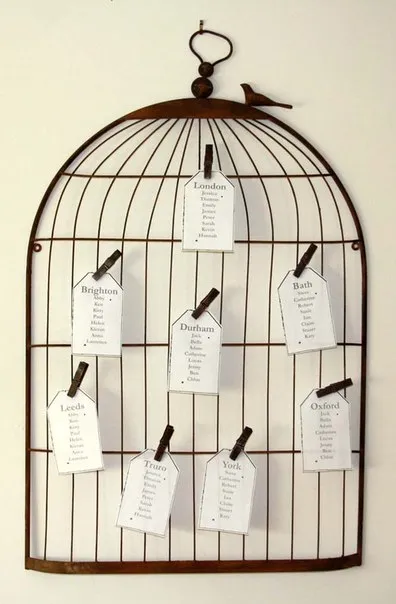 London
Jessica
Thomas
Emily
James
Peter
Sarah
Kevin
Hannah
Brighton
Abby
Ken
Katy
Paul
Helen
Kieran
Anna
Bath
Steve
Catherine
Robert
Susie
Ian
Claire
Stuart
Katy
Durham
Jack
Bella
Adam
Catherine
Lucas
Jenny
Ben
Chloe
Leeds
Abby
Katy
Paul
Helen
Kieran
Anna
Oxford
Jack
Bella
Adam
Catherine
Lucas
Jenny
Ben
Chloe
Truro
Jessica
Thomas
Emily
James
Peter
Sarah
Kevin
Hannah
York
Steve
Catherine
Robert
Susie
Ian
Claire
Stuart
Katy